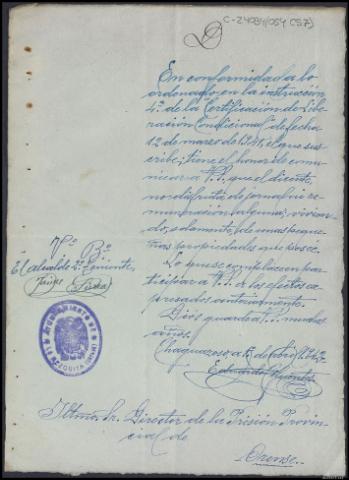 C-24084/054 (57)
En conformidad a lo
ordenado en la instrucción
4ª de la Certificación de Libe-
ración Condicional de fecha
12 de marzo de 1941, el que sus-
cribe; tiene el honor de comu-
nicar a V.S. que el dicente,
no disfruta de jornal ni re-
muneración alguna; vivien-
do, solamente de unas peque-
ñas propiedades que posee.
Lo que se complace en par-
ticipar a V.S. a los efectos ex-
presados anteriormente.
Dios guarde a V.S. muchos
años.
Chaguazoso, a 5 de 1942
Vº Bº
El alcalde 2º Teniente,
Ayuntamiento
MEZQUITA
Iltmo. Sr. Director de la Prisión Provin-
cial de
Orense.